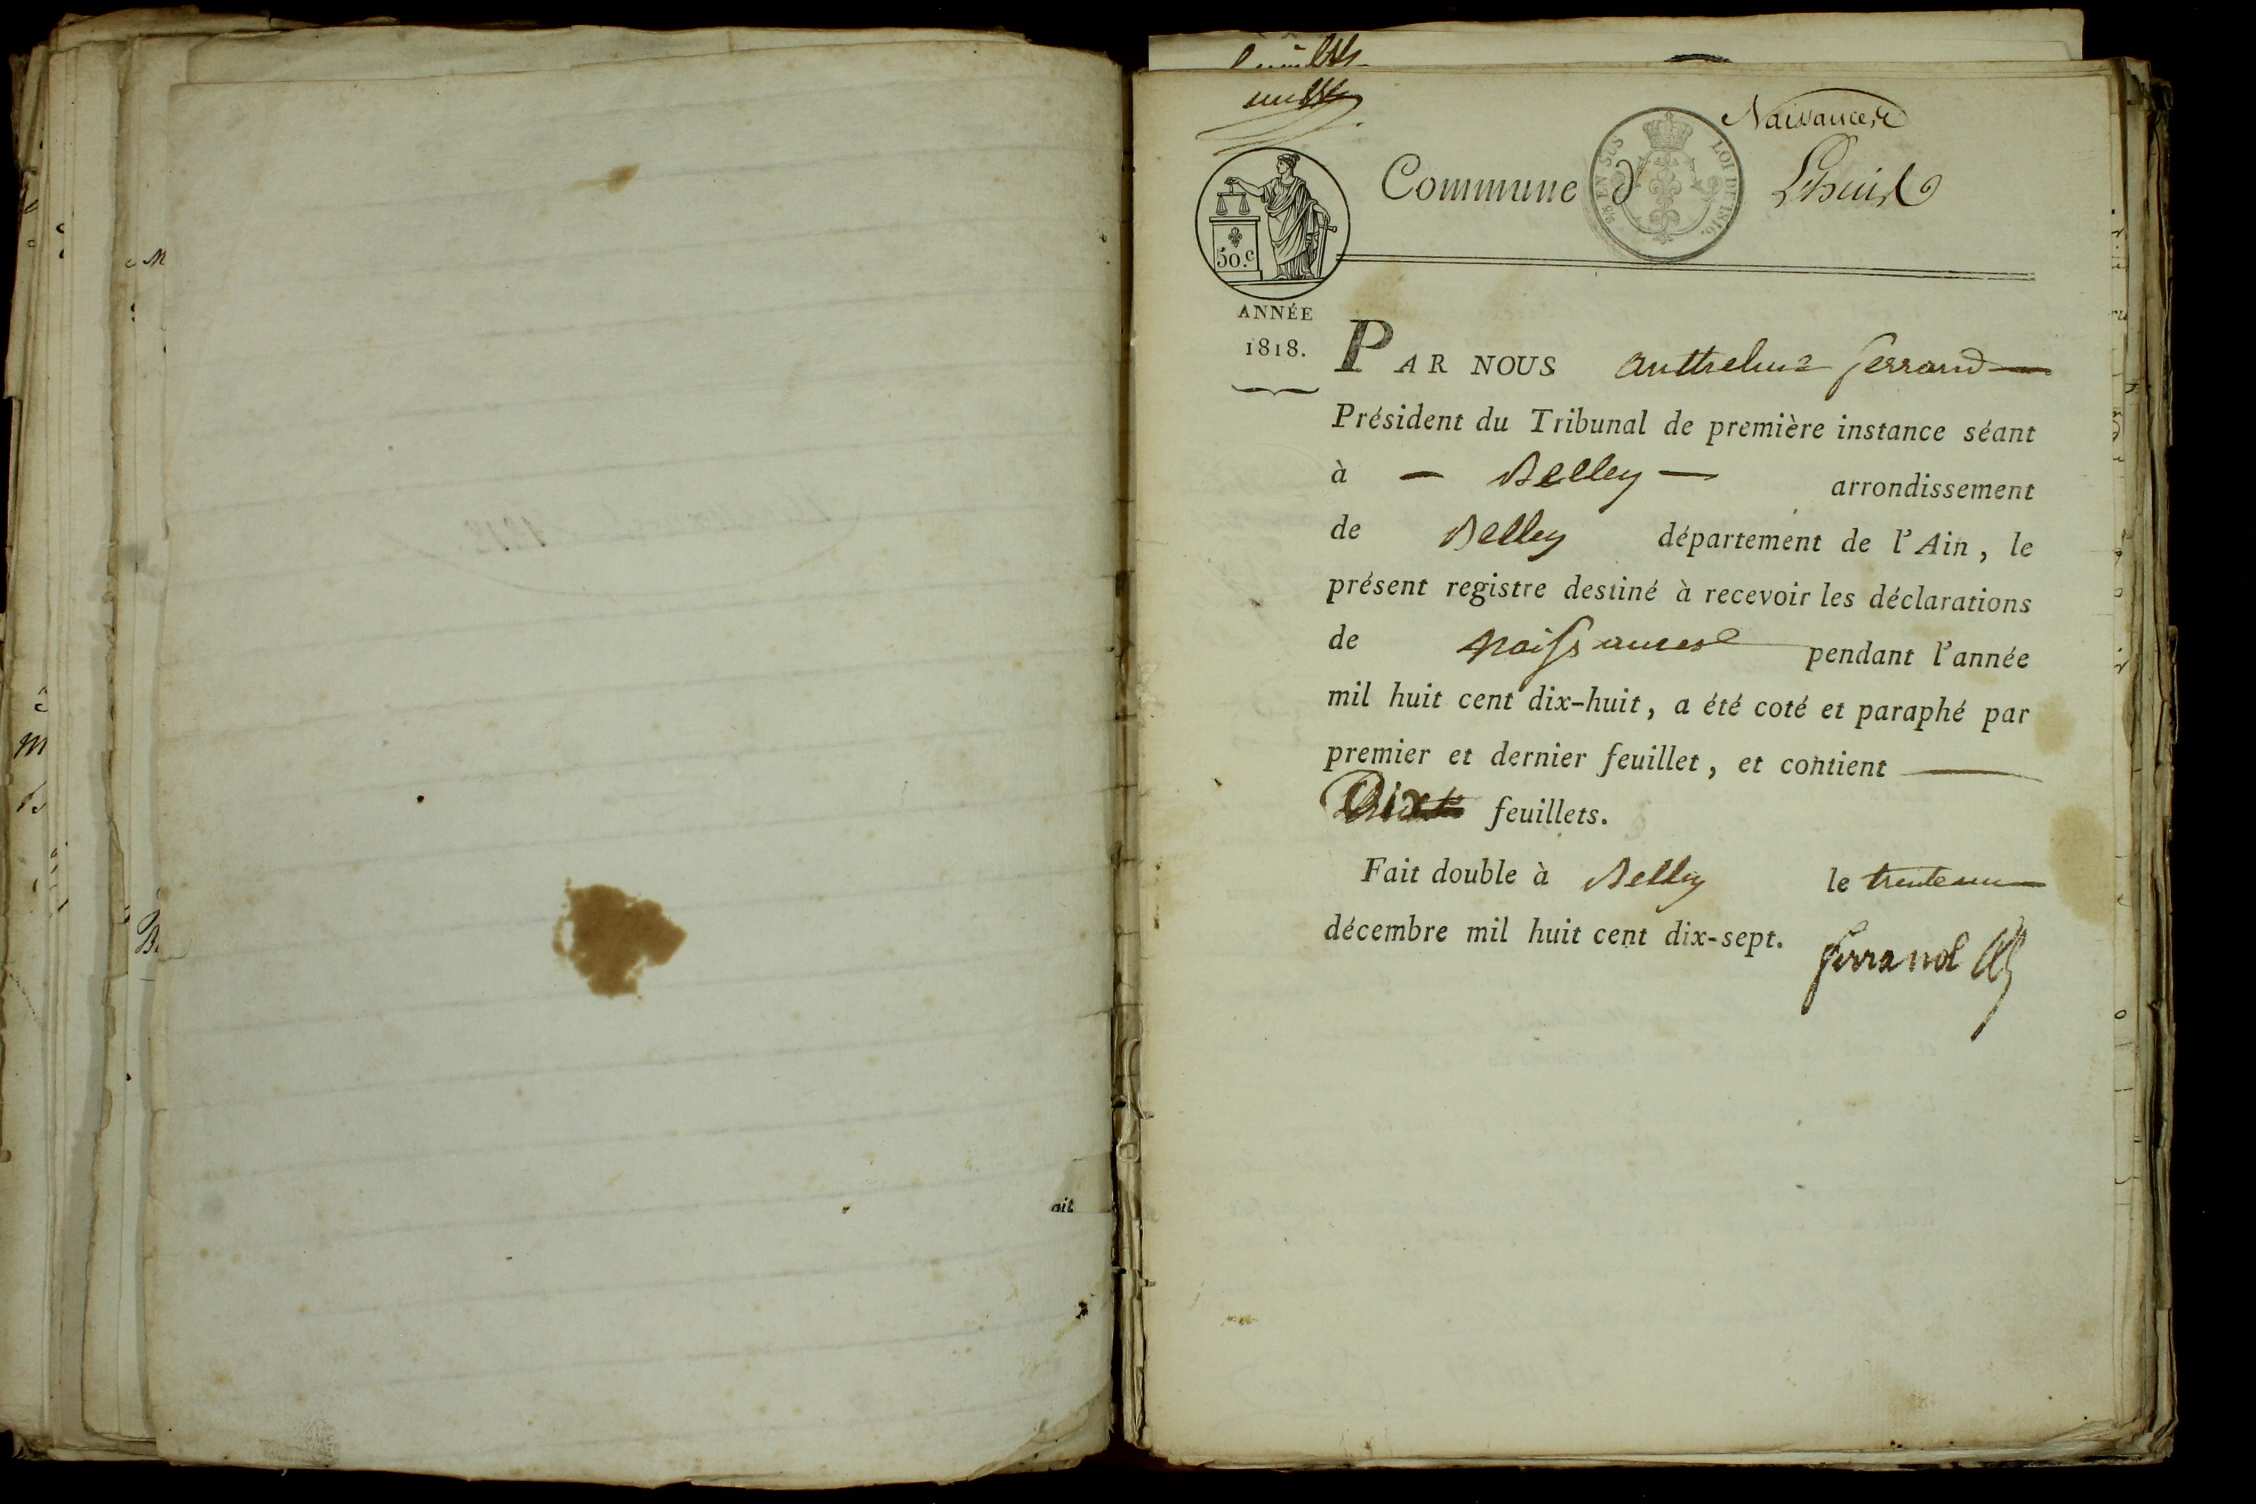 Naissances
Commune d' Lhuis
50.c
EN SUS LOI DE 1816.
ANNÉE
1818.
PAR NOUS Anthelme ferrand
Président du Tribunal de première instance séant
à — Belley — arrondissement
de Belley département de l'Ain, le
présent registre destiné à recevoir les déclarations
de Naissances pendant l'année
mil huit cent dix-huit, a été coté et paraphé par
premier et dernier feuillet, et contient
Dix feuillets.
Fait double à Belley le trente un
décembre mil huit cent dix-sept.
ferrand